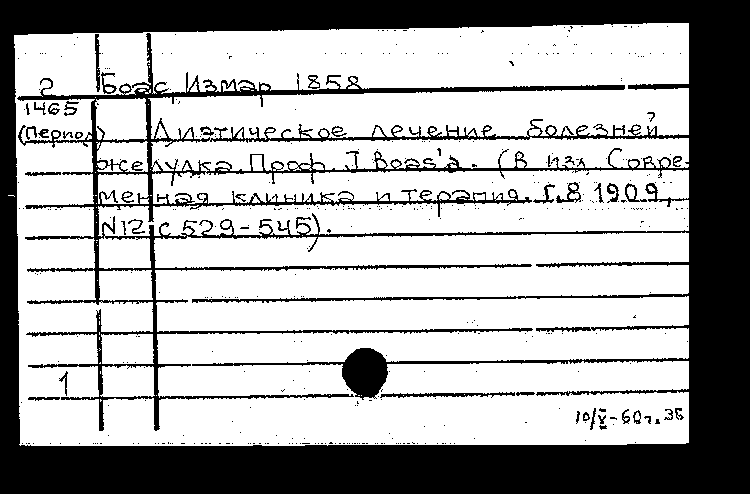 2 Боас, Измар 1858
1465
(Период) Диэтическое лечение болезней
желудка. Проф. J. Boas'a. (В изд. Совре-
менная клиника и терапия. Г.8 1909,
N12, с 529-545).
1
10/V-60г. ЗБ